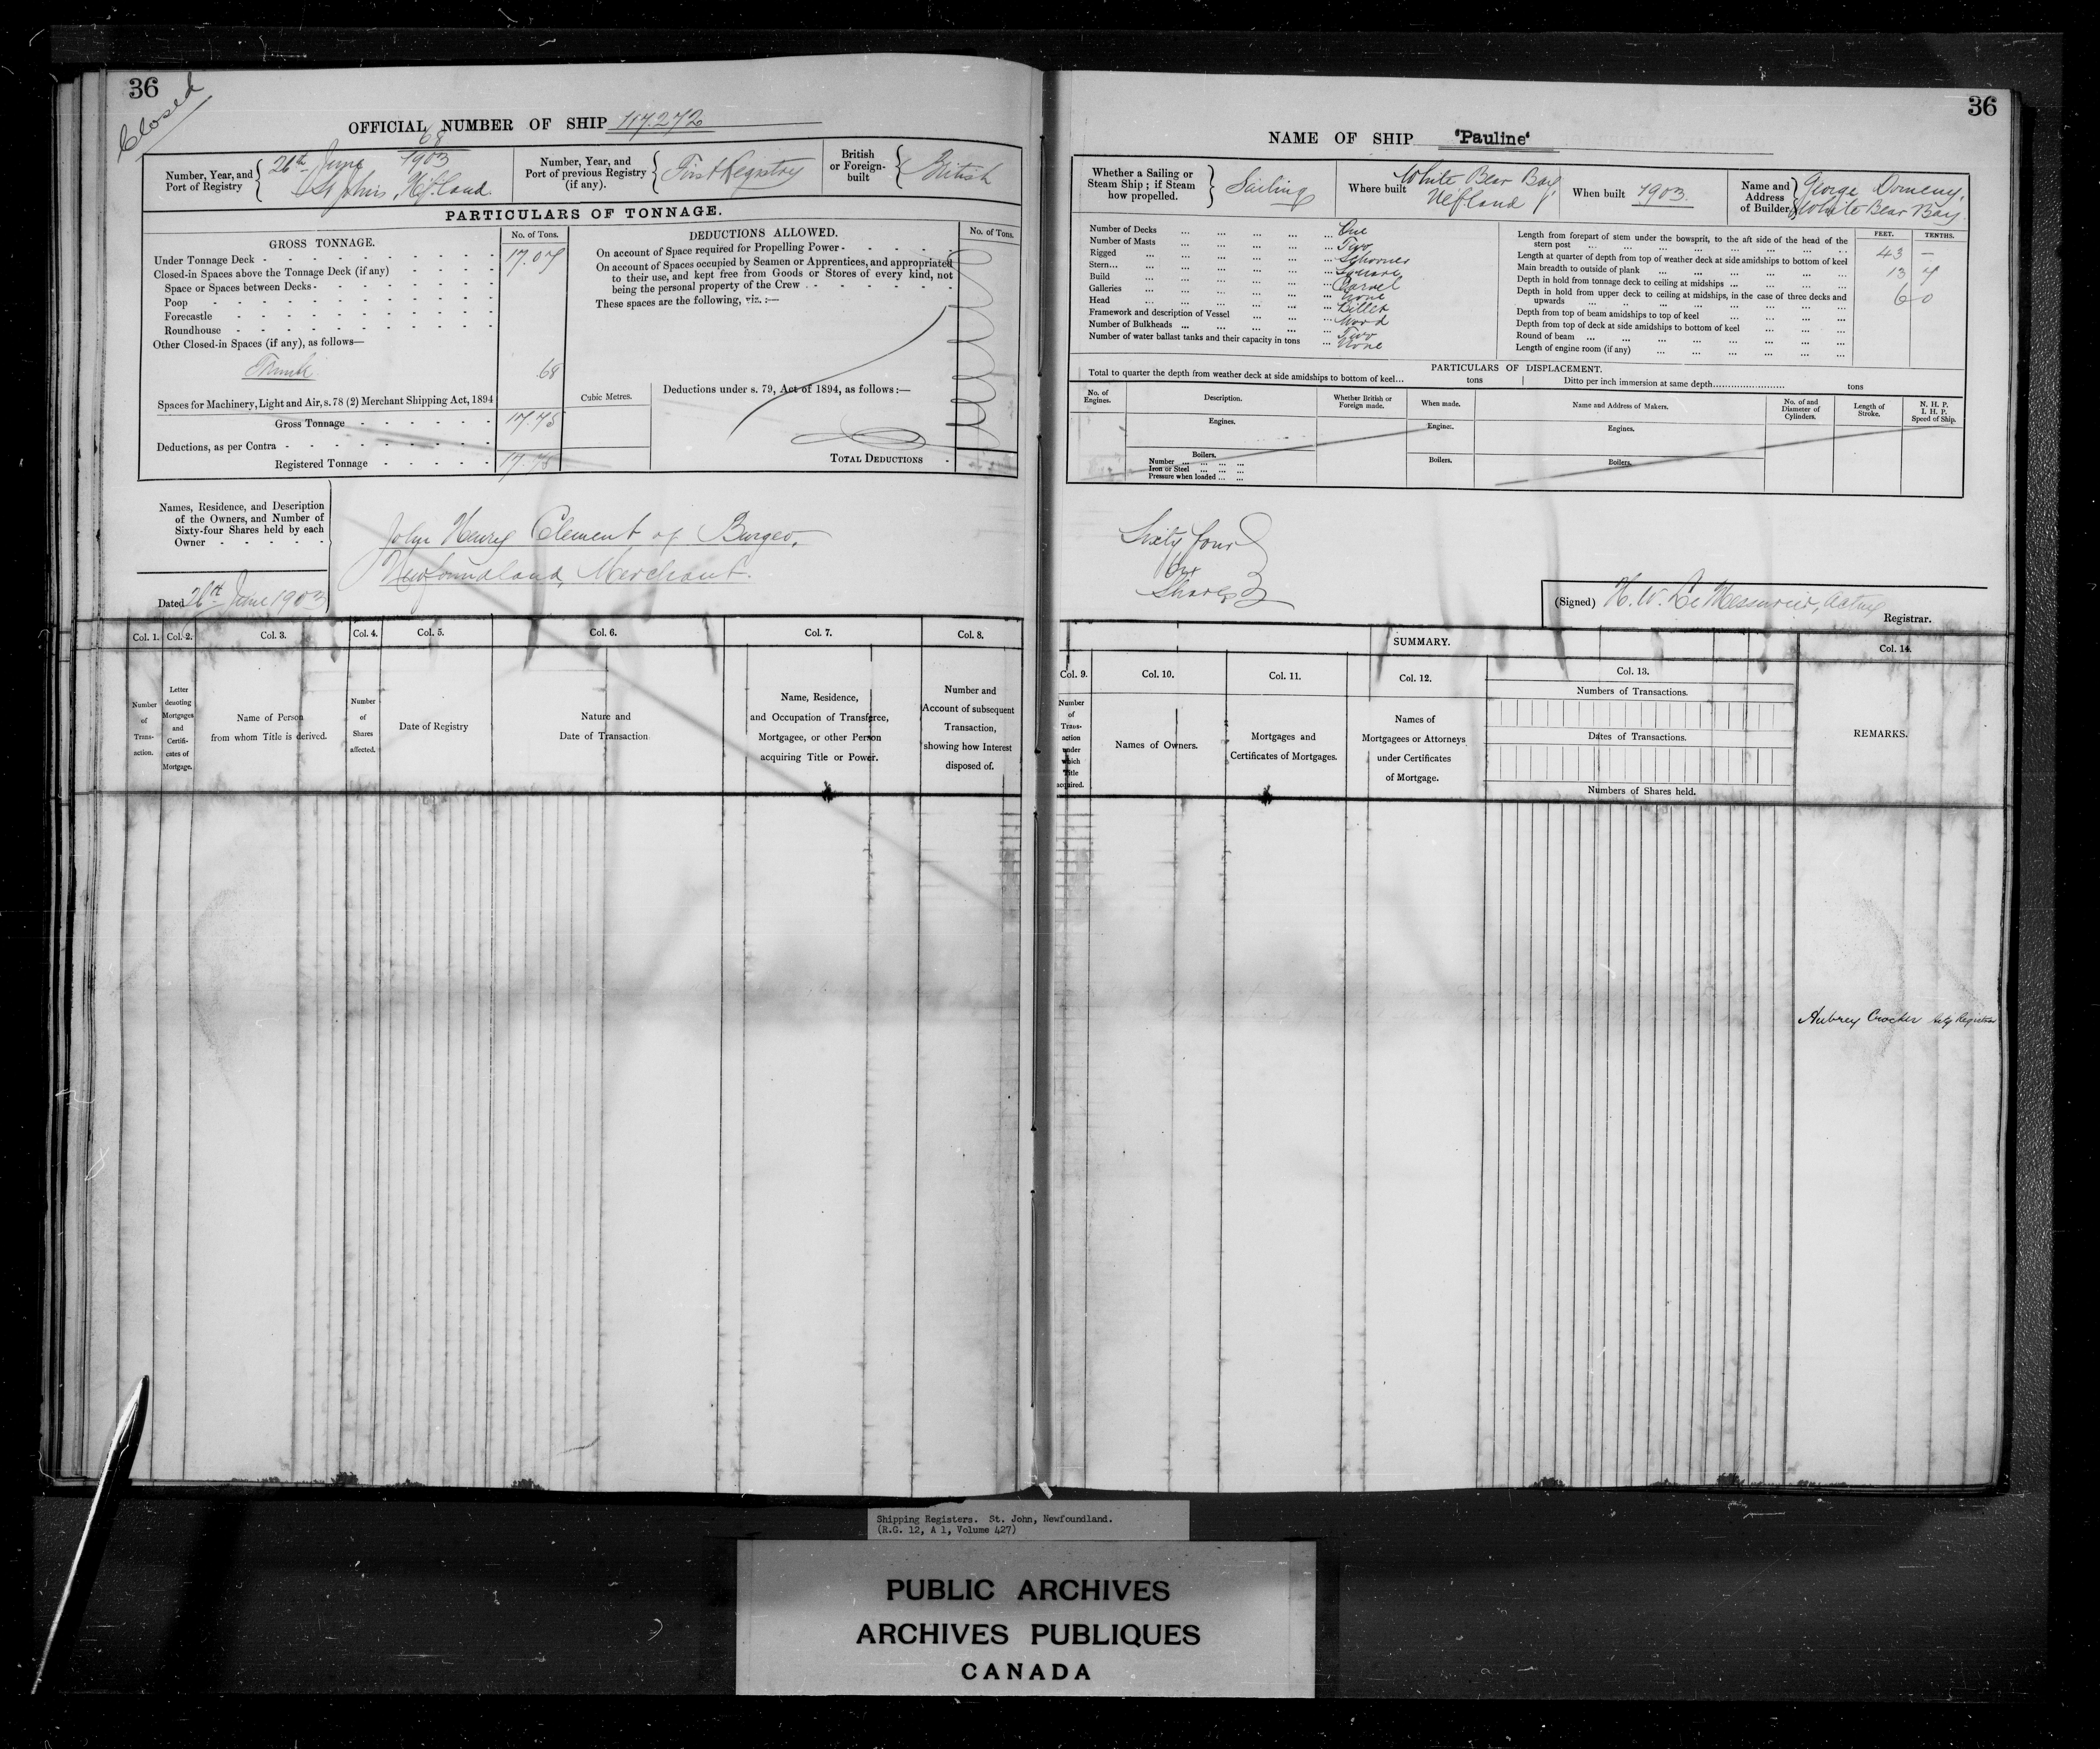 36
Closed
OFFICIAL NUMBER OF SHIP 117.272
Number, Year, and Port of Registry
68
26th June 1903
St Johns, Nfland.
Number, Year, and Port of previous Registry (if any).
First Registry
British or Foreign-built
British
PARTICULARS OF TONNAGE.
GROSS TONNAGE.
No. of Tons.
Under Tonnage Deck
17.07
Closed-in Spaces above the Tonnage Deck (if any)
Space or Spaces between Decks
Poop
Forecastle
Roundhouse
Other Closed-in Spaces (if any), as follows—
Trunk .68
Spaces for Machinery, Light and Air, s. 78 (2) Merchant Shipping Act, 1894
Gross Tonnage 17.75
Deductions, as per Contra
Registered Tonnage 17.75
DEDUCTIONS ALLOWED.
No. of Tons.
On account of Space required for Propelling Power
On account of Spaces occupied by Seamen or Apprentices, and appropriated
to their use, and kept free from Goods or Stores of every kind, not
being the personal property of the Crew
These spaces are the following, viz. :—
Cubic Metres.
Deductions under s. 79, Act of 1894, as follows :—
TOTAL DEDUCTIONS
Names, Residence, and Description
of the Owners, and Number of
Sixty-four Shares held by each
Owner
John Henry Clement of Burgeo,
Newfoundland, Merchant.
Dated 26th June 1903
Col. 1.
Col. 2.
Col. 3.
Col. 4.
Col. 5.
Col. 6.
Col. 7.
Col. 8.
Number of Transaction.
Letter denoting Mortgages and Certificates of Mortgage.
Name of Person from whom Title is derived.
Number of Shares affected.
Date of Registry
Nature and Date of Transaction
Name, Residence, and Occupation of Transferee, Mortgagee, or other Person acquiring Title or Power.
Number and Account of subsequent Transaction, showing how Interest disposed of.
36
NAME OF SHIP "Pauline"
Whether a Sailing or Steam Ship ; if Steam how propelled.
Sailing
Where built
White Bear Bay
Nfland
When built 1903.
Name and Address of Builder
George Domeny,
White Bear Bay.
Number of Decks One
Number of Masts Two
Rigged Schooner
Stern Square
Build Carvel
Galleries None
Head Billet
Framework and description of Vessel Wood
Number of Bulkheads Two
Number of water ballast tanks and their capacity in tons None
FEET.
TENTHS.
Length from forepart of stem under the bowsprit, to the aft side of the head of the
stern post 43 —
Length at quarter of depth from top of weather deck at side amidships to bottom of keel
Main breadth to outside of plank 13 7
Depth in hold from tonnage deck to ceiling at midships 6 0
Depth in hold from upper deck to ceiling at midships, in the case of three decks and
upwards
Depth from top of beam amidships to top of keel
Depth from top of deck at side amidships to bottom of keel
Round of beam
Length of engine room (if any)
PARTICULARS OF DISPLACEMENT.
Total to quarter the depth from weather deck at side amidships to bottom of keel... tons
Ditto per inch immersion at same depth tons
No. of Engines.
Description.
Whether British or Foreign made.
When made.
Name and Address of Makers.
No. of and Diameter of Cylinders.
Length of Stroke.
N. H. P.
I. H. P.
Speed of Ship.
Engines.
Engines.
Engines.
Boilers.
Number
Iron or Steel
Pressure when loaded
Boilers.
Boilers.
Sixty four
Shares
(Signed) H. W. Le Messurier, Acting
Registrar.
SUMMARY.
Col. 9.
Col. 10.
Col. 11.
Col. 12.
Col. 13.
Col. 14.
Number of Transaction under which Title acquired.
Names of Owners.
Mortgages and Certificates of Mortgages.
Names of Mortgagees or Attorneys under Certificates of Mortgage.
Numbers of Transactions.
Dates of Transactions.
Numbers of Shares held.
REMARKS.
Aubrey Crocker Actg Registrar
Shipping Registers. St. John, Newfoundland.
(R.G. 12, A 1, Volume 427)
PUBLIC ARCHIVES
ARCHIVES PUBLIQUES
CANADA